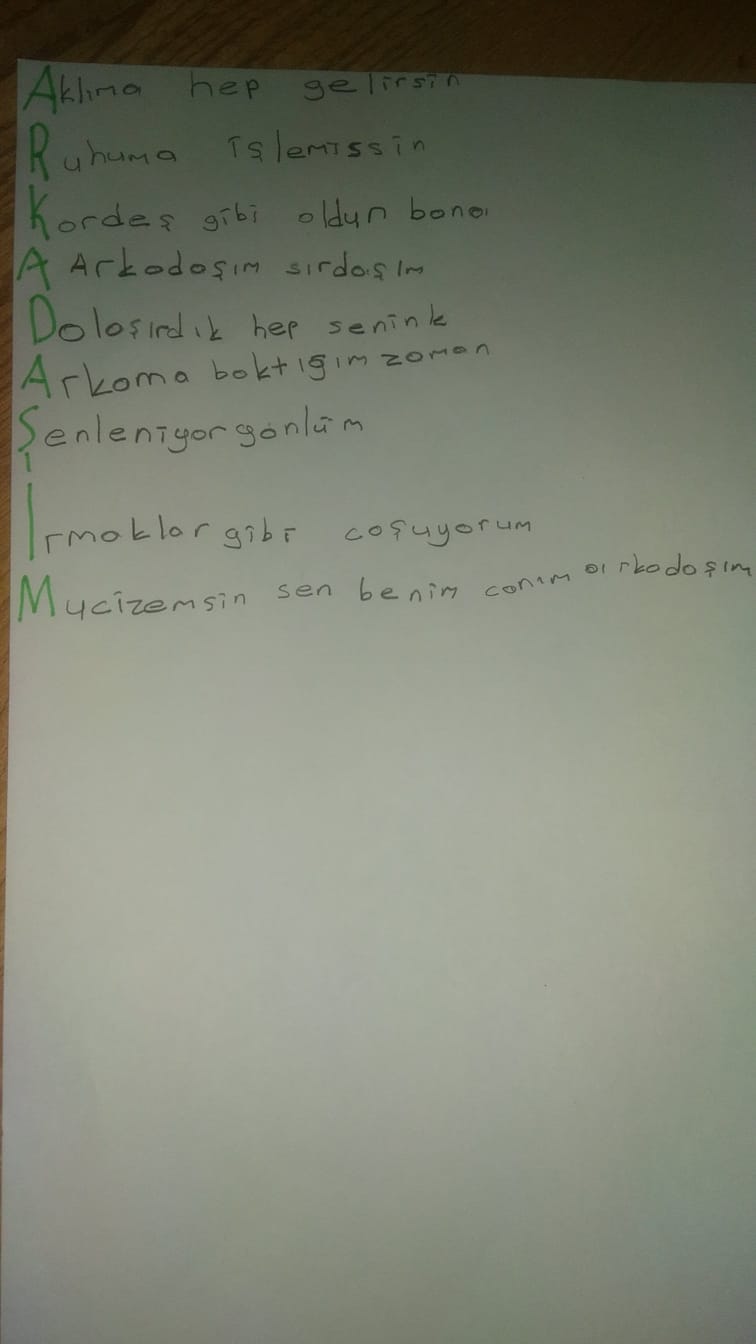 Aklıma hep gelirsin
Ruhuma işlemissin
Kardeş gibi oldun bana
A Arkadaşım sırdaşım
Dolaşırdık hep senink
Arkama baktığım zaman
Şenleniyor gönlüm
Irmaklar gibi coşuyorum
Mucizemsin sen benim canım arkadaşım